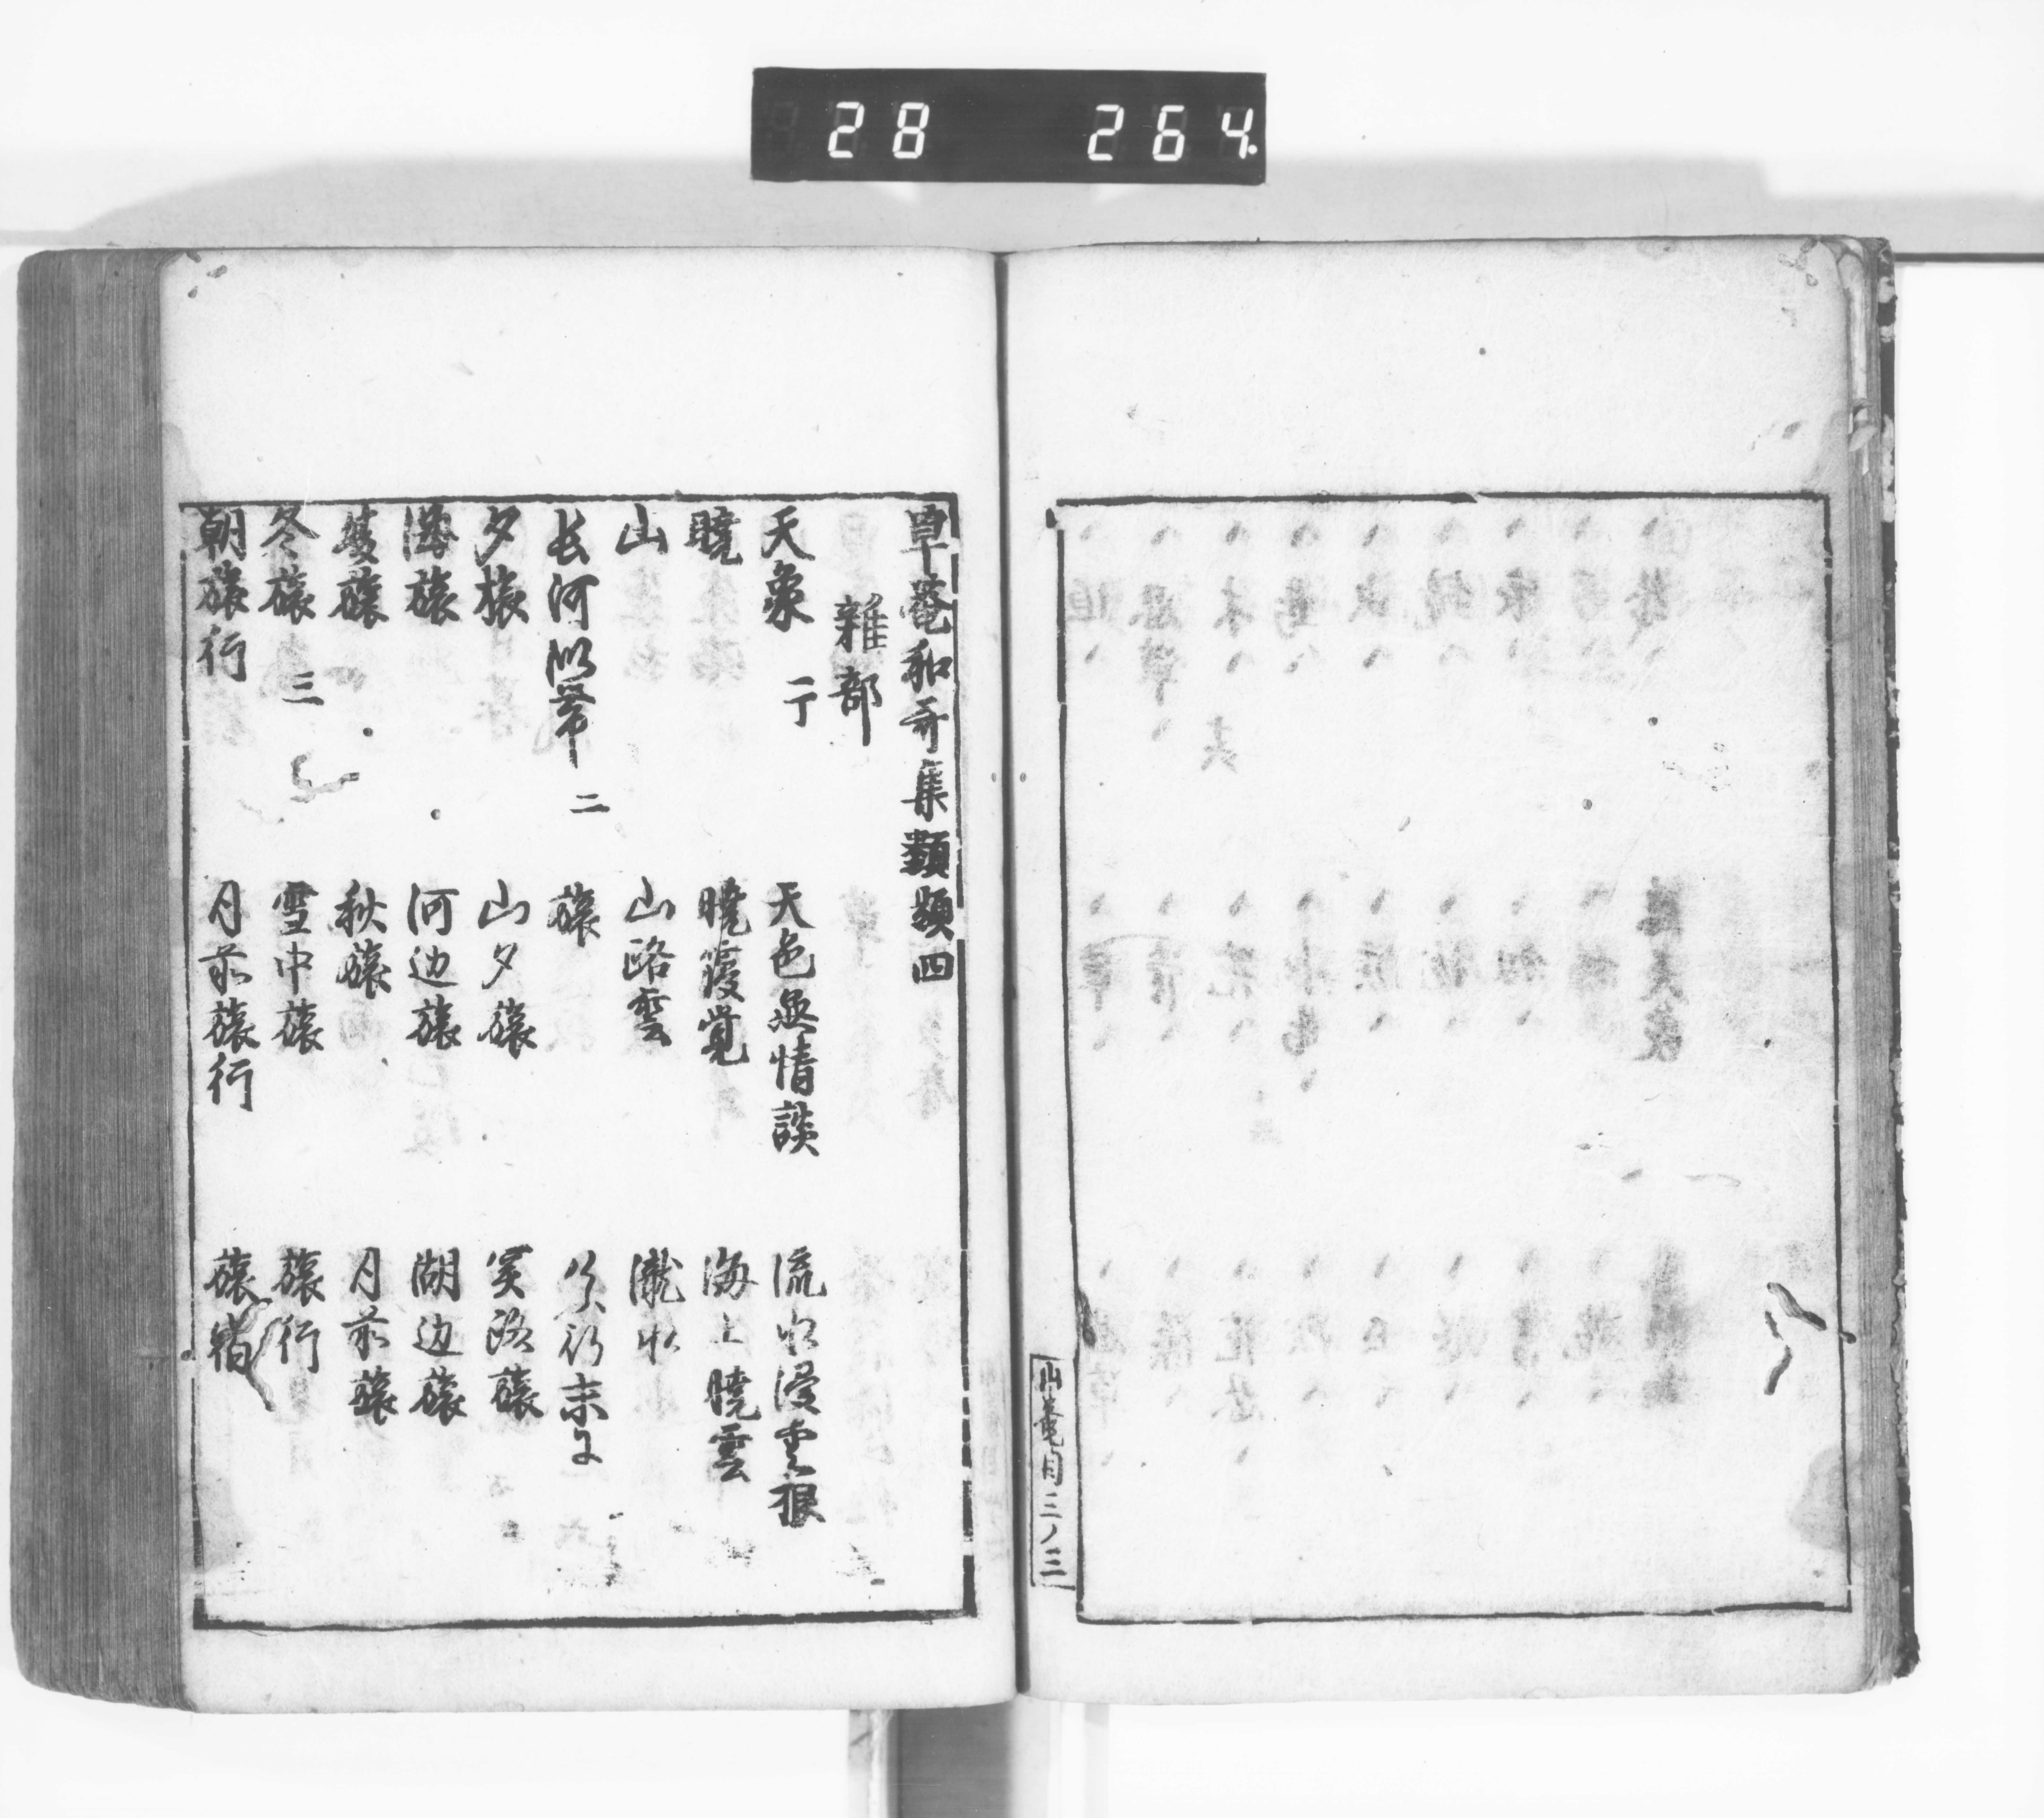 28 264
山菴目三ノ三
草菴和哥集類題四
雑部
天象 一丁
天色無情談
流水浸雲根
暁
暁寝覚
海上暁雲
山
山路雲
瀧水
長河似帯 二
旅
夕旅
山夕旅
関路旅
海旅
河辺旅
湖辺旅
夏旅
秋旅
月前旅
冬旅 三
雪中旅
旅行
朝旅行
月前旅行
旅宿